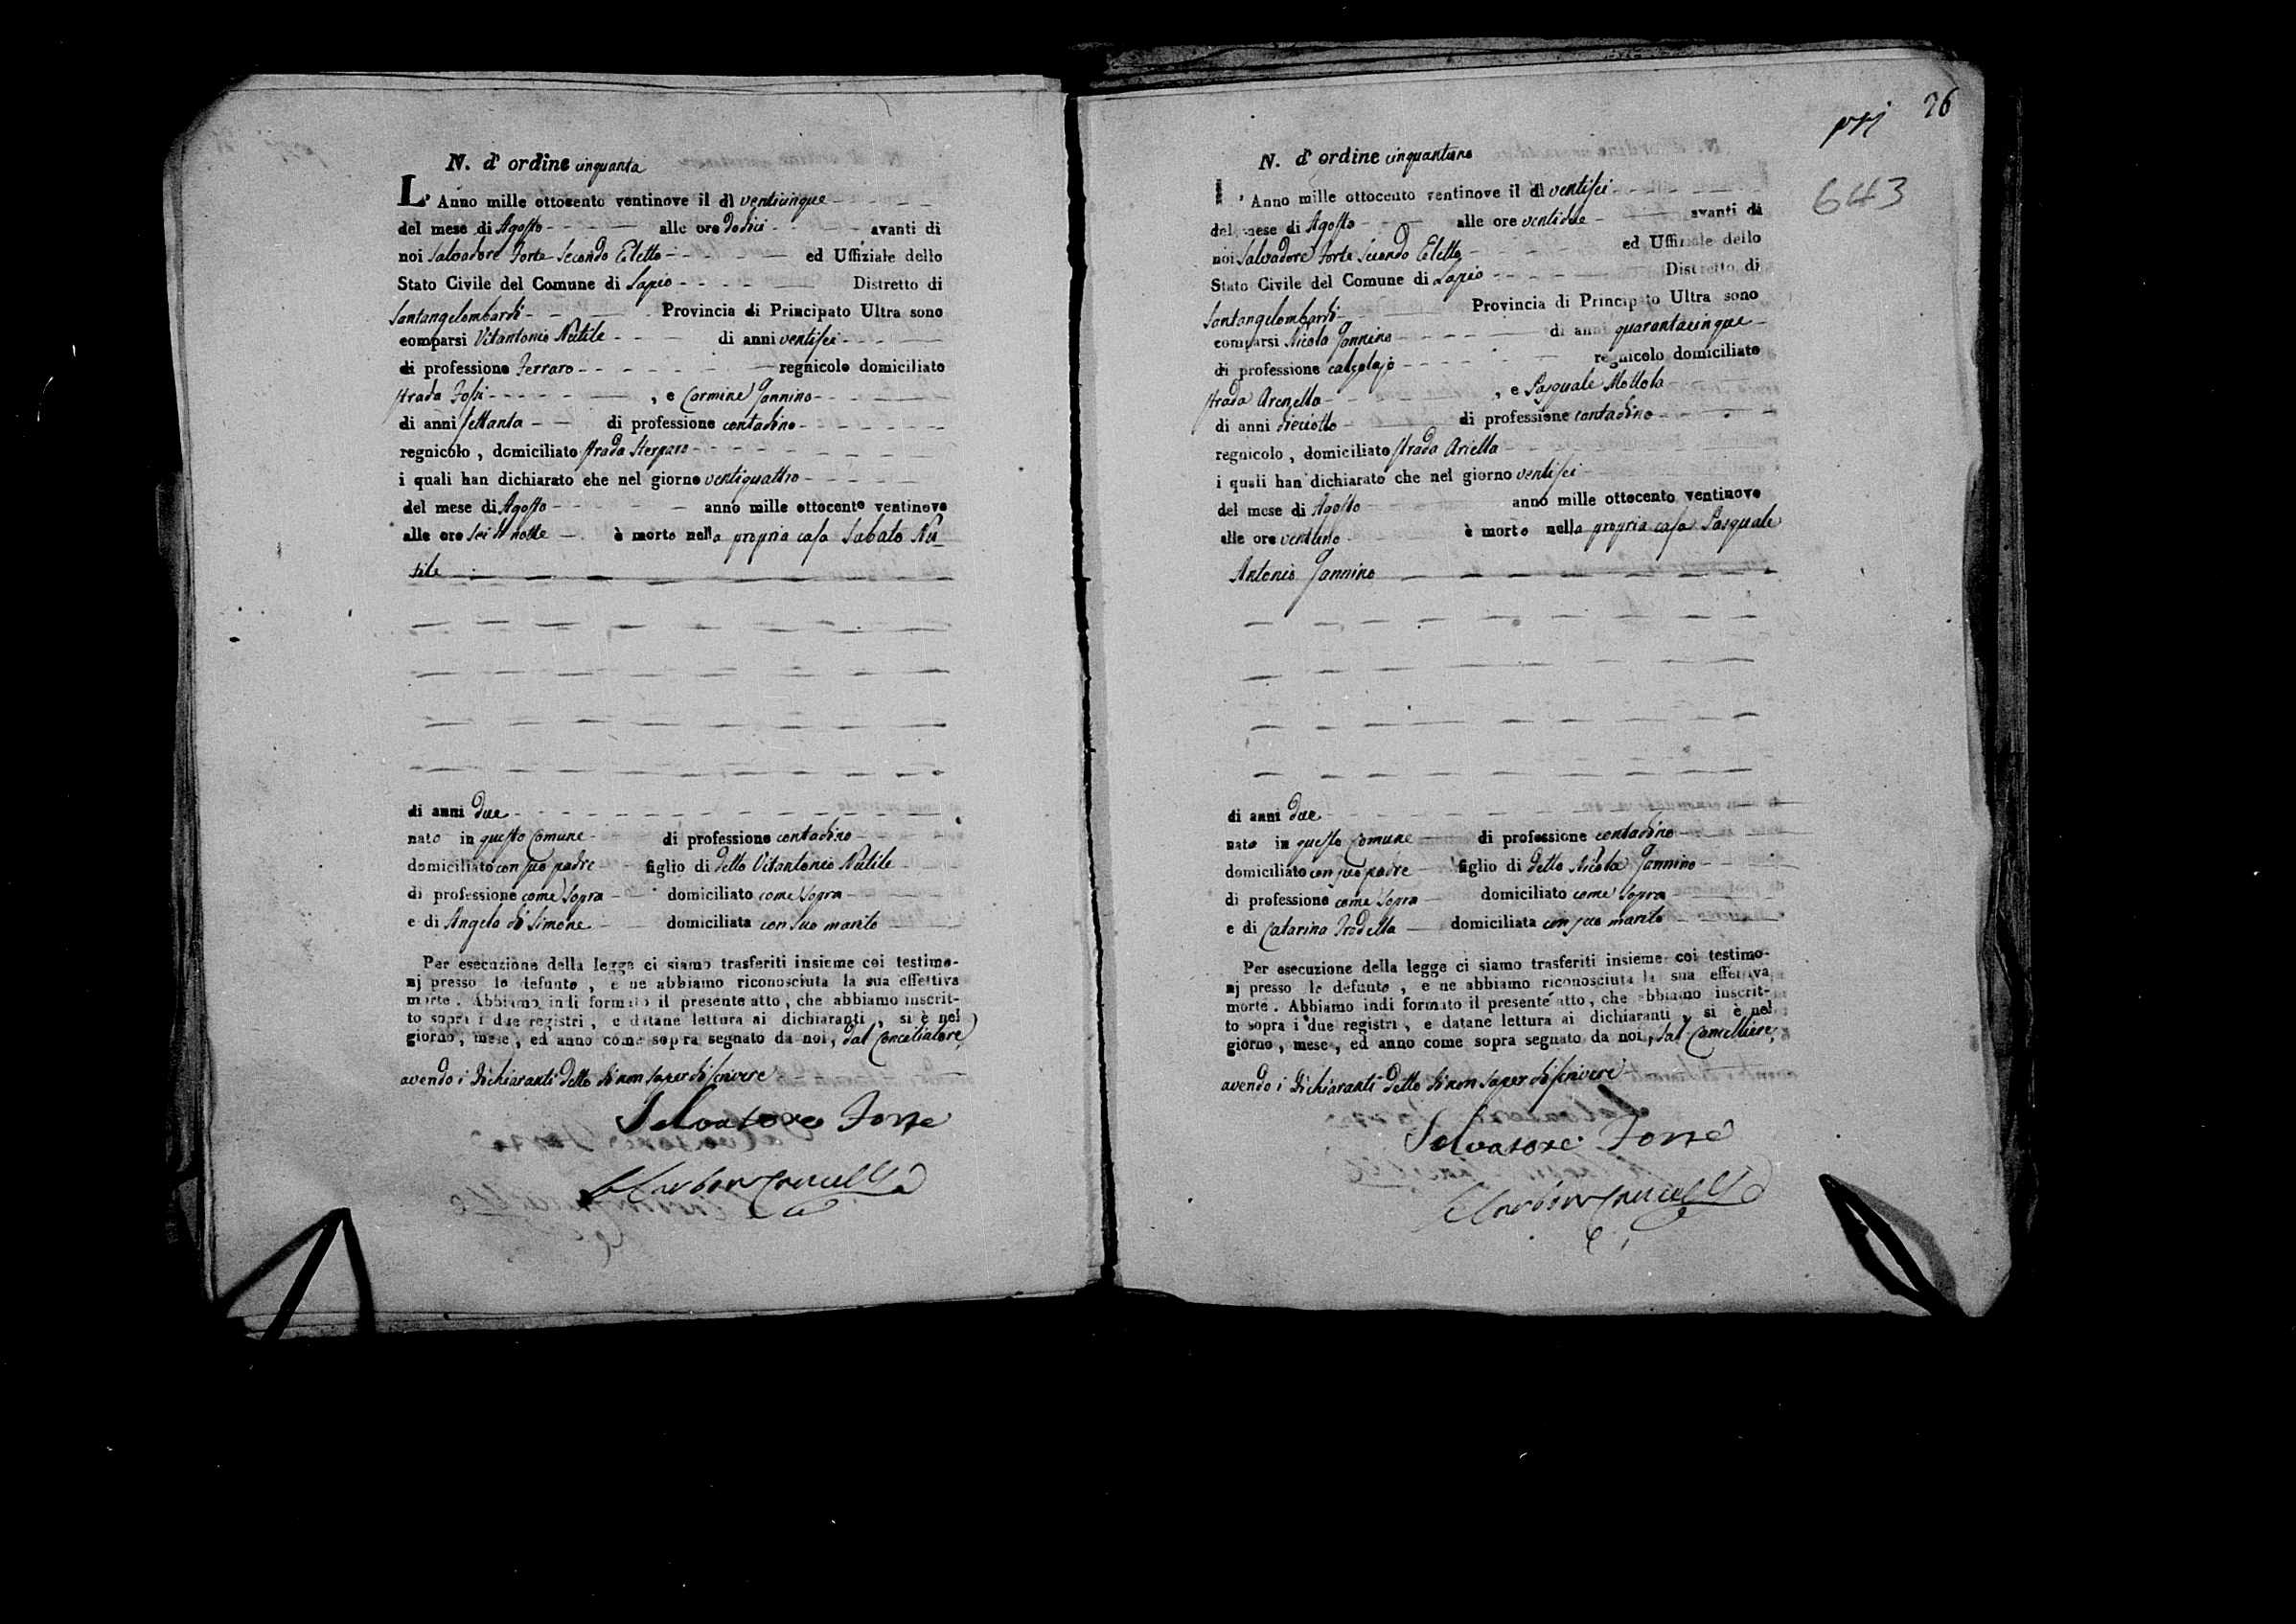 N. d' ordine cinquanta
L' Anno mille ottocento ventinove il dì venticinque
del mese di Agosto alle ore dodici avanti di
noi Salvadore Forte Secondo Eletto ed Uffiziale dello
Stato Civile del Comune di Lapio Distretto di
Santangelombardi Provincia di Principato Ultra sono
comparsi Vitantonio Nutile di anni ventisei
di professione Ferraro regnicolo domiciliato
strada Fossi , e Carmine Jannino
di anni settanta di professione contadino
regnicolo , domiciliato strada Sterparo
i quali han dichiarato che nel giorno ventiquattro
del mese di Agosto anno mille ottocento ventinove
alle ore sei di notte è morto nella propria casa Sabato Nu-
tile
di anni due
nato in questo Comune di professione contadino
domiciliato con suo padre figlio di detto Vitantonio Nutile
di professione come sopra domiciliato come sopra
e di Angela di Simone domiciliata con suo marito
Per esecuzione della legge ci siamo trasferiti insieme coi testimo-
nj presso lo defunto , e ne abbiamo riconosciuta la sua effettiva
morte . Abbiamo indi formato il presente atto , che abbiamo inscrit-
to sopra i due registri , e datane lettura ai dichiaranti , si è nel
giorno , mese , ed anno come sopra segnato da noi , dal Conciliatore,
avendo i dichiaranti detto di non saper di scrivere
Salvatore Forte
26
643
N. d' ordine cinquantuno
L' Anno mille ottocento ventinove il dì ventisei
del mese di Agosto alle ore ventidue avanti di
noi Salvadore Forte Secondo Eletto ed Uffiziale dello
Stato Civile del Comune di Lapio Distretto di
Santangelombardi Provincia di Principato Ultra sono
comparsi Nicola Jannino di anni quarantacinque
di professione calzolajo regnicolo domiciliato
strada Arenella , e Pasquale Mottola
di anni dieciotto di professione contadino
regnicolo , domiciliato strada Ariella
i quali han dichiarato che nel giorno ventisei
del mese di Agosto anno mille ottocento ventinove
alle ore ventuno è morto nella propria casa Pasquale
Antonio Jannino
di anni due
nato in questo Comune di professione contadino
domiciliato con suo padre figlio di detto Nicola Jannino
di professione come sopra domiciliato come sopra
e di Catarina domiciliata con suo marito
Per esecuzione della legge ci siamo trasferiti insieme coi testimo-
nj presso lo defunto , e ne abbiamo riconosciuta la sua effettiva
morte . Abbiamo indi formato il presente atto , che abbiamo inscrit-
to sopra i due registri , e datane lettura ai dichiaranti , si è nel
giorno , mese , ed anno come sopra segnato da noi , dal Cancelliere,
avendo i dichiaranti detto di non saper di scrivere
Salvatore Forte